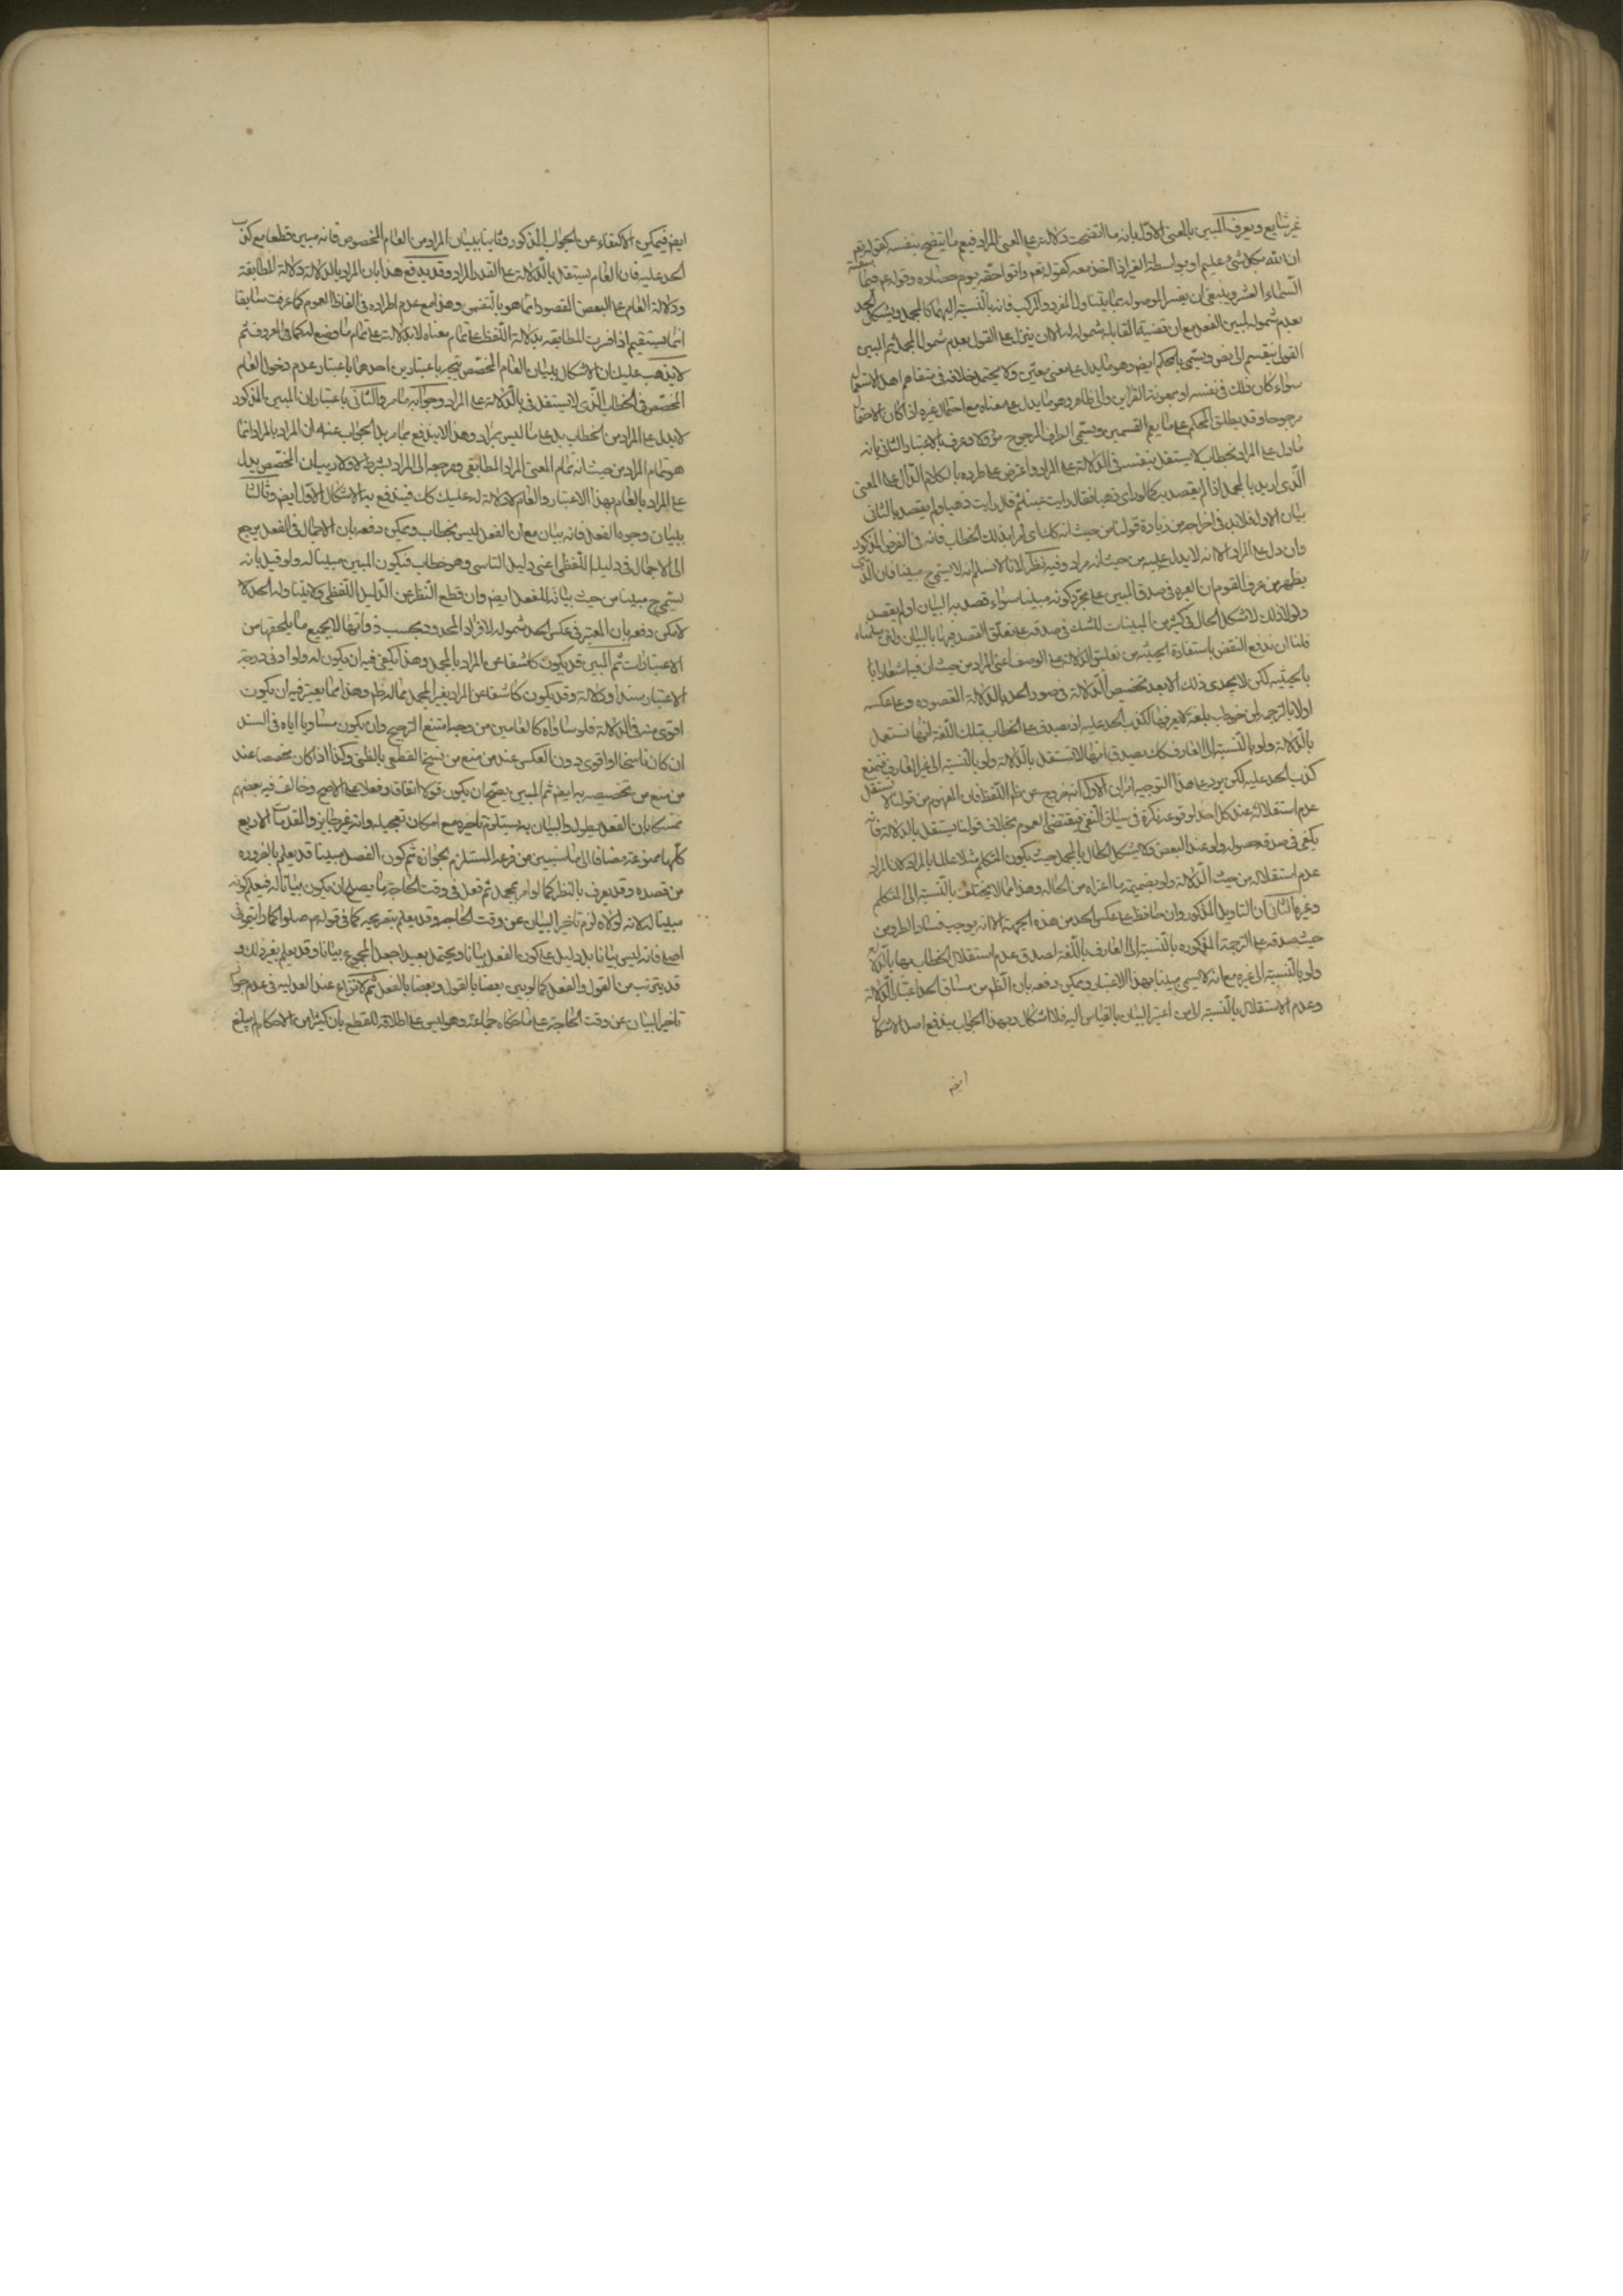 غير شايع ويعرف المبين بالمعنى الاول بانه ما اتضحت دلالته على المعنى المراد فيعم ما يتضح بنفسه كقوله تعم
ان الله بكل شئ عليم او بواسطة الغير اذا اتخذ معه كقوله تعم واتوا حقه يوم حصاده وقوله عم فيما سقته
السماء العشر وينبغي ان يفسر الموصوله بما يتناول المفرد والمركب فانه بالنسبة اليهما كالمجمل ويشكل الحد
بعدم شموله لمبين الفعل مع ان قضية المقابلة شموله له الا ان ينزل على القول بعدم شمول المجمل ثم المبين
القول ينقسم الى نص ويسمى بالمحكم ايض وهو ما يدل على معنى معين ولا يحتمل خلافه في متفاهم اهل الاستعمال
سواء كان ذلك في نفسه او بمعونة القراين والى ظاهر وهو ما يدل على معناه مع احتمال غيره اذا كان الاحتمال
مرجوحا وقد يطلق المحكم على ما يعم القسمين ويسمى الطرف المرجوح مؤولا وعرف بالاعتبار الثاني بانه
ما دل على المراد بخطاب لا يستقل بنفسه في الدلالة على المراد واعترض على طرده بالكلام الدال على المعنى
الذي اريد بالمجمل اذا لم يقصد به كما لو راى ذهبا فقال رايت عينا ثم قال رايت ذهبا ولم يقصد بالثاني
بيان الاول فلا بد في اخراجه من زيادة قولنا من حيث انه كك اي مراد بذلك الخطاب فانه في الفرض المذكور
وان دل على المراد الا انه لا يدل عليه من حيث انه مراد وفيه نظر لانا لا نسلم انه لا يسمى ح مبينا فان الذي
يظهر من عرف القوم ان العبرة في صدق المبين على مجرد كونه مبينا سواء قصد به البيان او لم يقصد
ولولا ذلك لاشكل الحال في كثير من المبينات للشك في صدقه على تعلق القصد فيها بالبيان ولئن سلمناه
فلنا ان ندفع النقض باستفادة الحيثية من تعليق الدلالة على الوصف اعني المراد من حيث ان فيه اشعارا
بالحيثية لكن لا يجدي ذلك الا بعد تخصيص الدلالة في صدر الحد بالدلالة المقصوده وعلى عكسه
اولا بالترجمة لمن خوطب بلغة لا يعرفها الكذب الحد عليه اذ يصدق على الخطاب بتلك اللغة انها تستعمل
بالدلالة ولو بالنسبة الى العارف كك يصدق انها لا تستقل بالدلالة ولو بالنسبة الى غير العارف فيمنع
كذب الحد عليه لكن يرد على هذا التوجيه امران الاول انه خروج عن ظم اللفظ فان المفهوم من قولنا لا يستقل
عدم استقلاله عند كل احد لوقوعه نكرة في سياق النفي فيقتضي العموم بخلاف قولنا يستقل بالدلالة فانه
يكفي في صدقه حصوله ولو عند البعض ولا يشكل الحال بالمجمل حيث يكون المتكلم مثلا عالما بالمراد لان المراد
عدم استقلاله من حيث الدلالة ولو بضميمة ما اعتراه من الحاله وهذا مما لا يختلف بالنسبة الى المتكلم
وغيره الثاني ان التاويل المذكور وان حافظ على عكس الحد من هذه الجهة الا انه يوجب فساد الطرد من
حيث صدقه على الترجمة المذكوره بالنسبة الى العارف باللغة لصدق عدم استقلال الخطاب بها بالدلالة
ولو بالنسبة الى غيره مع انه لا يسمى مبينا بهذا الاعتبار ويمكن دفعه بان الظم من مساق الحد اعتبار الدلالة
وعدم الاستقلال بالنسبة الى من اعتبر البيان بالقياس اليه فلا اشكال وبهذا الجواب يندفع اصل الاشكال
ايض
ايض فيمكن الاكتفاء عن الجواب المذكور وثانيا ببيان المراد من العام المخصوص فانه مبين قطعا مع كذب
الحد عليه فان العام يستقل بالدلالة على القدر المراد وقد يدفع هذا بان المراد بالدلالة دلالة المطابقة
ودلالة العام على البعض المقصود انما هو بالتضمن وهذا مع عدم اطراده في الفاظ العموم كما عرفت سابقا
انما يستقيم اذا فسرت المطابقة بدلالة اللفظ على تمام معناه لا بدلالته على تمام ما وضع له كما هو المعروف ثم
لا يذهب عليك ان الاشكال ببيان العام المخصص يتجه باعتبارين احدهما باعتبار عدم دخول العام
المخصص في الخطاب الذي لا يستقل في بالدلالة على المراد وجوابه ما مر والثاني باعتبار ان المبين المذكور
لا يدل على المراد من الخطاب بل على ما ليس بمراد وهذا لا يندفع بما مر بل الجواب عنه ان المراد بالمراد انما
هو تمام المراد من حيث انه تمام المعنى المراد المطابقي ومرجعه الى المراد بشرط لا ولا ريب ان المخصص يدل
على المراد بالعام بهذا الاعتبار والعام لا دلالة له عليه كك فيندفع به الاشكال الاول ايض وثالثا
ببيان وجوه الفعل فانه بيان مع ان الفعل ليس بخطاب ويمكن دفعه بان الاجمال في الفعل يرجع
الى الاجمال في دليله اللفظي اعني دليل التاسي وهو خطاب فيكون المبين مبينا له ولو قيل بانه
يسمى ح مبينا من حيث بيانه للفعل ايض وان قطع النظر عن الدليل اللفظي ولا يتناوله الحد لا
لامكن دفعه بان المعتبر في عكس الحد شموله لافراد المحدود بحسب ذواتها لا بجميع ما يلحقها من
الاعتبارات ثم المبين قد يكون كاشفا عن المراد بالمجمل وهذا يكفي فيه ان يكون له ولو ادنى درجة
الاعتبار سندا ودلالة وقد يكون كاشفا عن المراد بغير المجمل مما له ظم وهذا مما يعتبر فيه ان يكون
اقوى منه في الدلالة فلو ساواه كالعامين من وجه امتنع الترجيح وان يكون مساويا اياه في السند
ان كان ناسخا او اقوى دون العكس عند من منع من نسخ القطعي بالظني وكذا اذا كان مخصصا عند
من منع من تخصيصه به ايض ثم المبين يصح ان يكون قولا اتفاقا وفعلا على الاصح وخالف فيه بعضهم
تمسكا بان الفعل يطول والبيان به يستلزم تاخيره مع امكان تعجيله وانه غير جايز والمقدمات الاربع
كلها ممنوعة مضافا الى ما سنبين من وقوعه المستلزم بجوازه ثم كون الفعل مبينا قد يعلم بالضروره
من قصده وقد يعرف بالنظر كما لو امر بمجمل ثم فعل في وقت الحاجة ما يصلح ان يكون بيانا له فيعلم كونه
مبينا له لانه لولاه لزم تاخير البيان عن وقت الحاجة وقد يعلم بتصريحه كما في قوله ص صلوا كما رايتموني
اصلي فانه ليس بيانا بل دليل على كون الفعل بيانا ويحتمل بعيدا جعل المجموع بيانا وقد يعلم بغير ذلك و
قد يتركب من القول والفعل كما لو بين بعضا بالقول وبعضا بالفعل ثم لا نزاع عند العدلية في عدم جواز
تاخير البيان عن وقت الحاجة على ما حكاه جماعة وهو ليس على اطلاقه للقطع بان كثيرا من الاحكام لم يبلغ